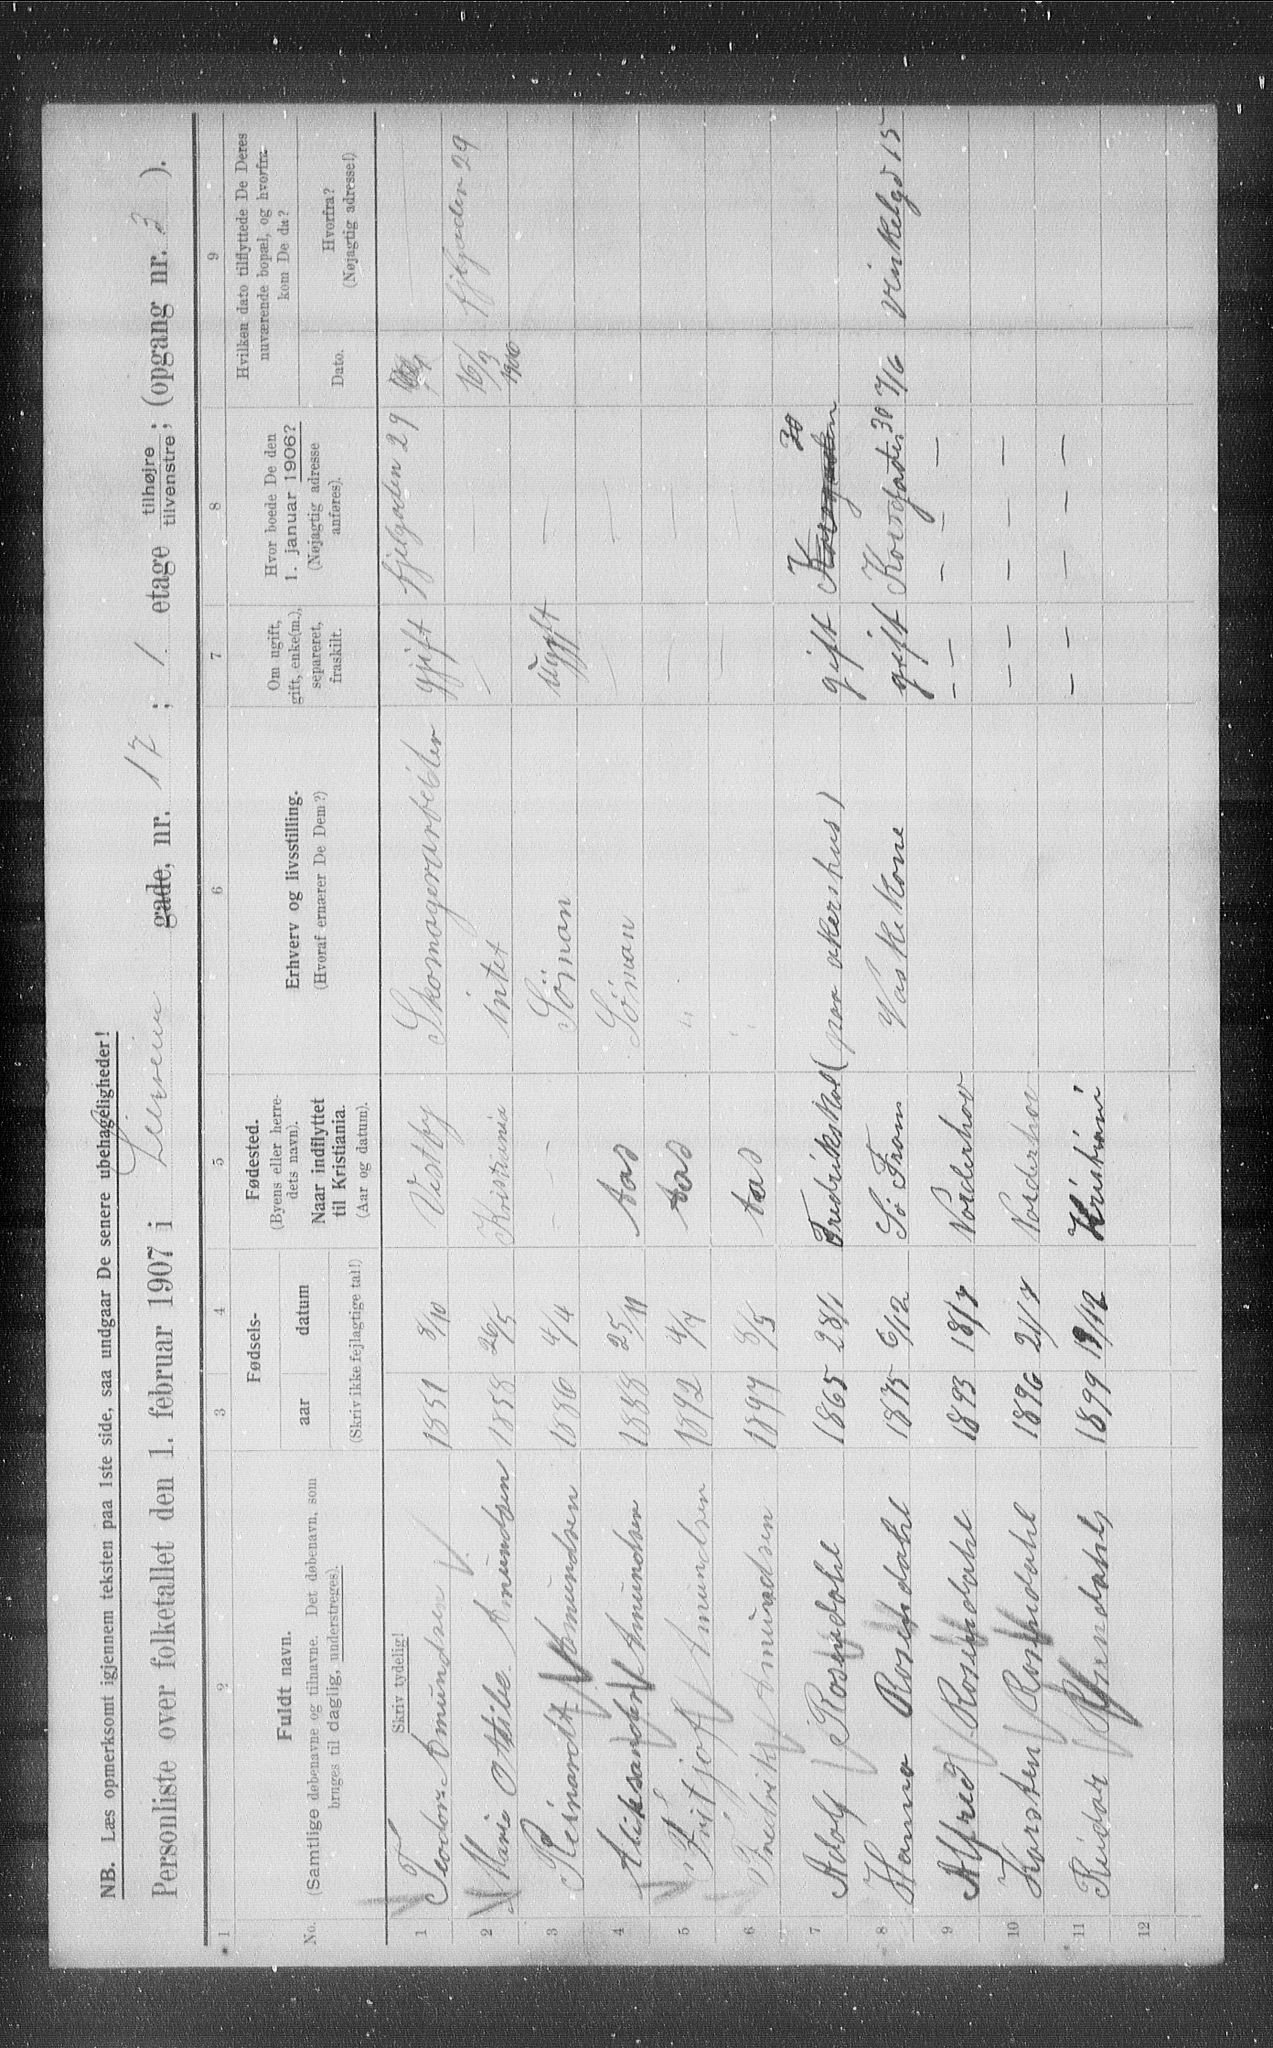 NB. Læs opmerksomt igjennem teksten paa 1ste side, saa undgaar De senere ubehageligheder!
Personliste over folketallet den 1. februar 1907 i gade, nr. 17 ; 1 etage tilhøjre tilvenstre; (opgang nr. 3 ).
1 2 3 4 5 6 7 8 9
No.
Fuldt navn.
(Samtlige døbenavne og tilnavne. Det døbenavn, som
bruges til daglig, understreges).
Skriv tydelig!
Fødsels-
aar datum
(Skriv ikke fejlagtige tal!)
Fødested.
(Byens eller herre-
dets navn).
Naar indflyttet
til Kristiania.
(Aar og datum).
Erhverv og livsstilling.
(Hvoraf ernærer De Dem?)
Om ugift,
gift, enke(m.),
separeret,
fraskilt.
Hvor boede De den
1. januar 1906?
(Nøjagtig adresse
anføres).
Hvilken dato tilflyttede De Deres
nuværende bopæl, og hvorfra
kom De da?
Dato.
Hvorfra?
(Nøjagtig adresse!)
1 Teodor Amundsen 1851 8/10 Vestby Skomagerarbeider gjift fjelgaden 29
2 Marie Othilie Amundsen 1858 26/5 Kristiania intet — — 16/9 1906 fjelgaden 29
3 Reinardt Amundsen 1886 4/4 — Söman ugift —
4 Aleksander Amundsen 1888 25/11 Aas Söman — —
5 Fritjof Amundsen 1892 4/7 Aas " — —
6 Fredrik Amundsen 1897 8/5 Aas " — —
7 Adolf Rosendahl 1865 28/1 Fredrikshal (paa akershus) gift Korsgaden 30
8 Hanna Rosendahl 1875 6/12 Sö Fron Vaskekone gift Korsgaden 30 7/6 Vinkelgd 15
9 Alfred Rosendahl 1893 18/7 Norderhov — — — — —
10 Karsten Rosendahl 1896 21/7 Norderhov — — — — —
11 Reidar Rosendahl 1899 19/12 Kristiani — — — — —
12